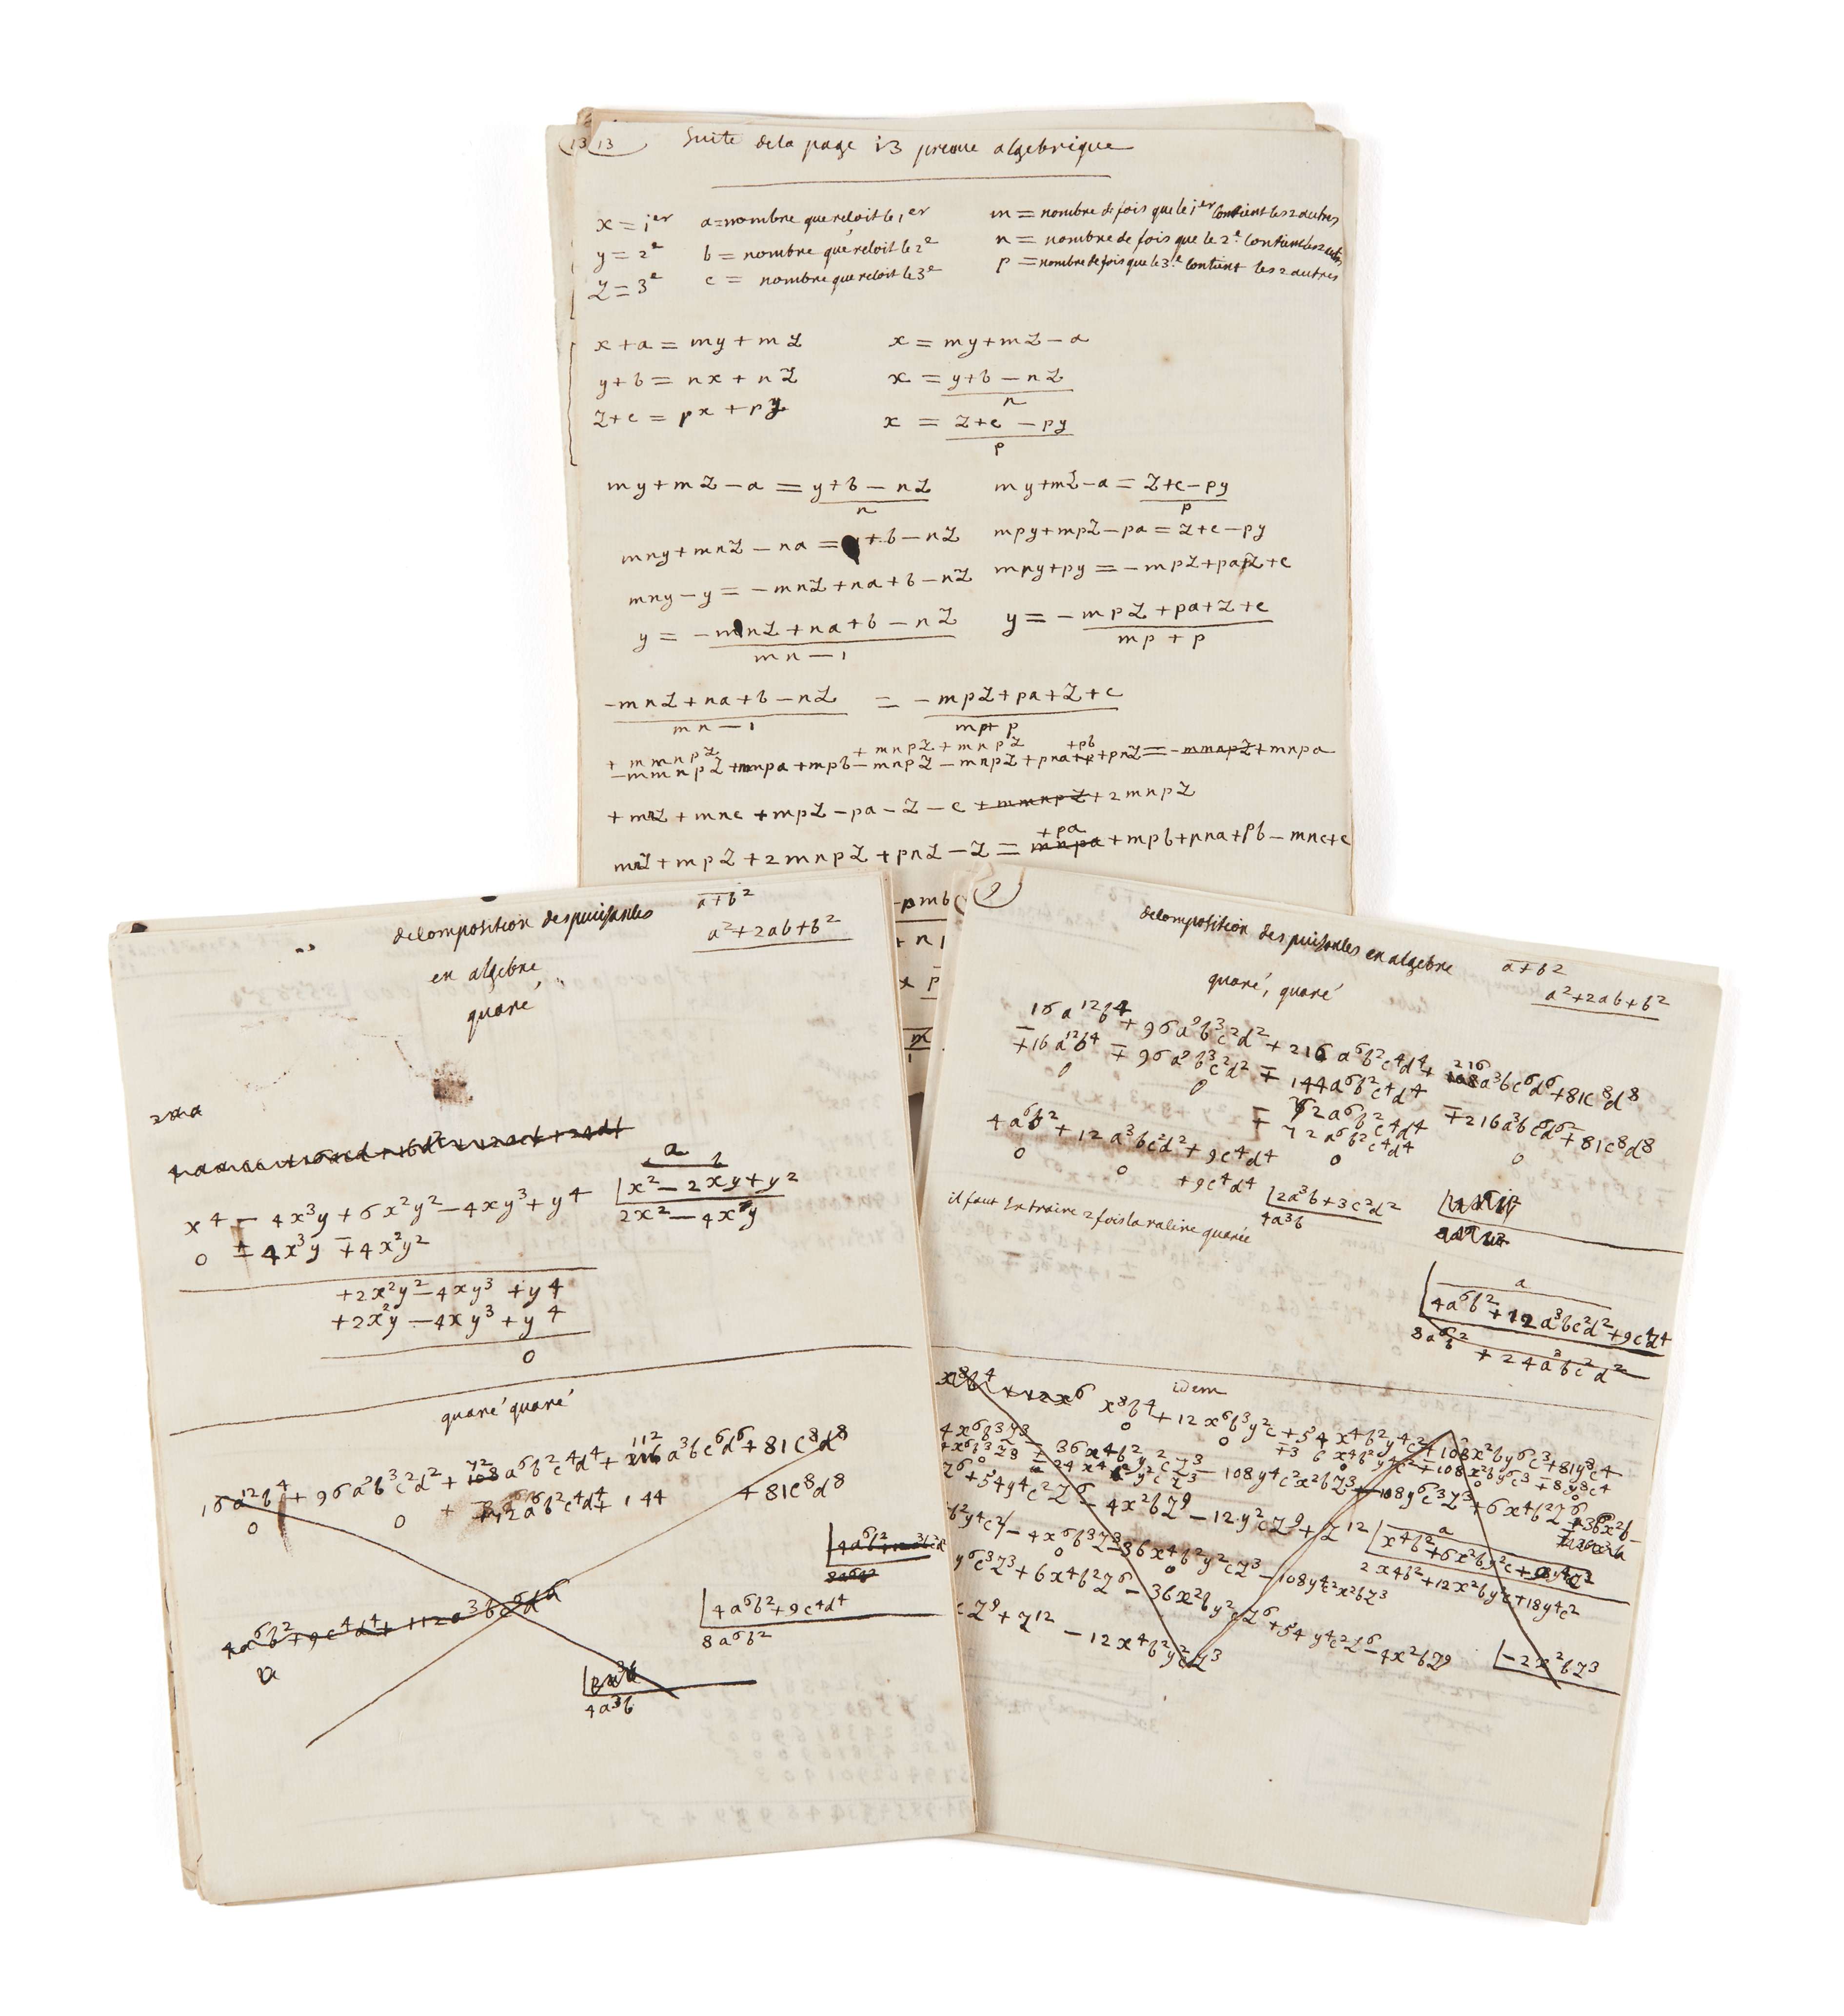 13 13 Suite dela page 13 preuve algebrique
x = 1er a = nombre que recoit le 1er m = nombre de fois que le 1er contient les 2 autres
y = 2e b = nombre que recoit le 2e n = nombre de fois que le 2e contient les 2 autres
z = 3e c = nombre que recoit le 3e p = nombre de fois que le 3e contient les 2 autres
x + a = my + mz x = my + mz – a
y + b = nx + nz x = y + b – nz / n
z + c = px + py x = z + c – py / p
my + mz – a = y + b – nz / n my + mz – a = z + c – py / p
mny + mnz – na = y + b – nz mpy + mpz – pa = z + c – py
mny – y = – mnz + na + b – nz mpy + py = – mpz + pa + z + c
y = – mnz + na + b – nz / mn – 1 y = – mpz + pa + z + c / mp + p
– mnz + na + b – nz / mn – 1 = – mpz + pa + z + c / mp + p
+ mmnpz + mnpz + mnpz + pb
– mmnpz + mnpa + mpb – mnpz – mnpz + pna + p + pnz = – mmnpz + mnpa
+ mnz + mnc + mpz – pa – z – c + mmnpz + 2mnpz
+ pa
mnz + mpz + 2mnpz + pnz – z = mnpa + mpb + pna + pb – mnc + c
– pmb
decomposition des puissances a+b²
en algebre a² + 2ab + b²
quarré
x⁴ – 4x³y + 6x²y² – 4xy³ + y⁴ x² – 2xy + y²
0 ± 4x³y ∓ 4x²y² 2x² – 4xy
+ 2x²y² – 4xy³ + y⁴
+ 2x²y² – 4xy³ + y⁴
0
quarré quarré
72 112
16a¹²b⁴ + 96a⁹b³c²d² + 108a⁶b²c⁴d⁴ + 216a³bc⁶d⁶ + 81c⁸d⁸
0 0 + 72a⁶b²c⁴d⁴ + 144 + 81c⁸d⁸
4a⁶b² + 9c⁴d⁴ + 112a³bc²d²
4a⁶b² + 9c⁴d⁴
8a⁶b²
2a³b
4a³b
9
decomposition des puissances en algebre a+b²
quarré, quarré a² + 2ab + b²
216
16a¹²b⁴ + 96a⁹b³c²d² + 216a⁶b²c⁴d⁴ + 108a³bc⁶d⁶ + 81c⁸d⁸
∓16a¹²b⁴ ∓ 96a⁹b³c²d² ∓ 144a⁶b²c⁴d⁴
0 0 ∓ 72a⁶b²c⁴d⁴ ∓ 216a³bc⁶d⁶ ∓ 81c⁸d⁸
72a⁶b²c⁴d⁴
4a⁶b² + 12a³bc²d² + 9c⁴d⁴ 0 0
0 0 + 9c⁴d⁴ 2a³b + 3c²d²
4a³b
il faut Extraire 2 fois la racine quarée
a
4a⁶b² + 12a³bc²d² + 9c⁴d⁴
8a⁶b² + 24a³bc²d²
idem
x⁸b⁴ + 12x⁶ x⁸b⁴ + 12x⁶b³y²c + 54x⁴b²y⁴c² + 108x²by⁶c³ + 81y⁸c⁴
4x⁶b³z³ – 36x⁴b²y²cz³ – 108y⁴c²x²bz³ – 108y⁶c³z³ + 6x⁴b²z⁶
z⁶ + 54y⁴c²z⁶ – 4x²bz⁹ – 12y²cz⁹ + z¹² x⁴b² + 6x²by²c + 9y⁴c²
b²y⁴c² – 4x⁶b³z³ – 36x⁴b²y²cz³ – 108y⁴c²x²bz³ 2x⁴b² + 12x²by²c + 18y⁴c²
y⁶c³z³ + 6x⁴b²z⁶ – 36x²by²cz⁶ + 54y⁴c²z⁶ – 4x²bz⁹
cz⁹ + z¹² – 12x⁴b²y²cz³ – 2x²bz³